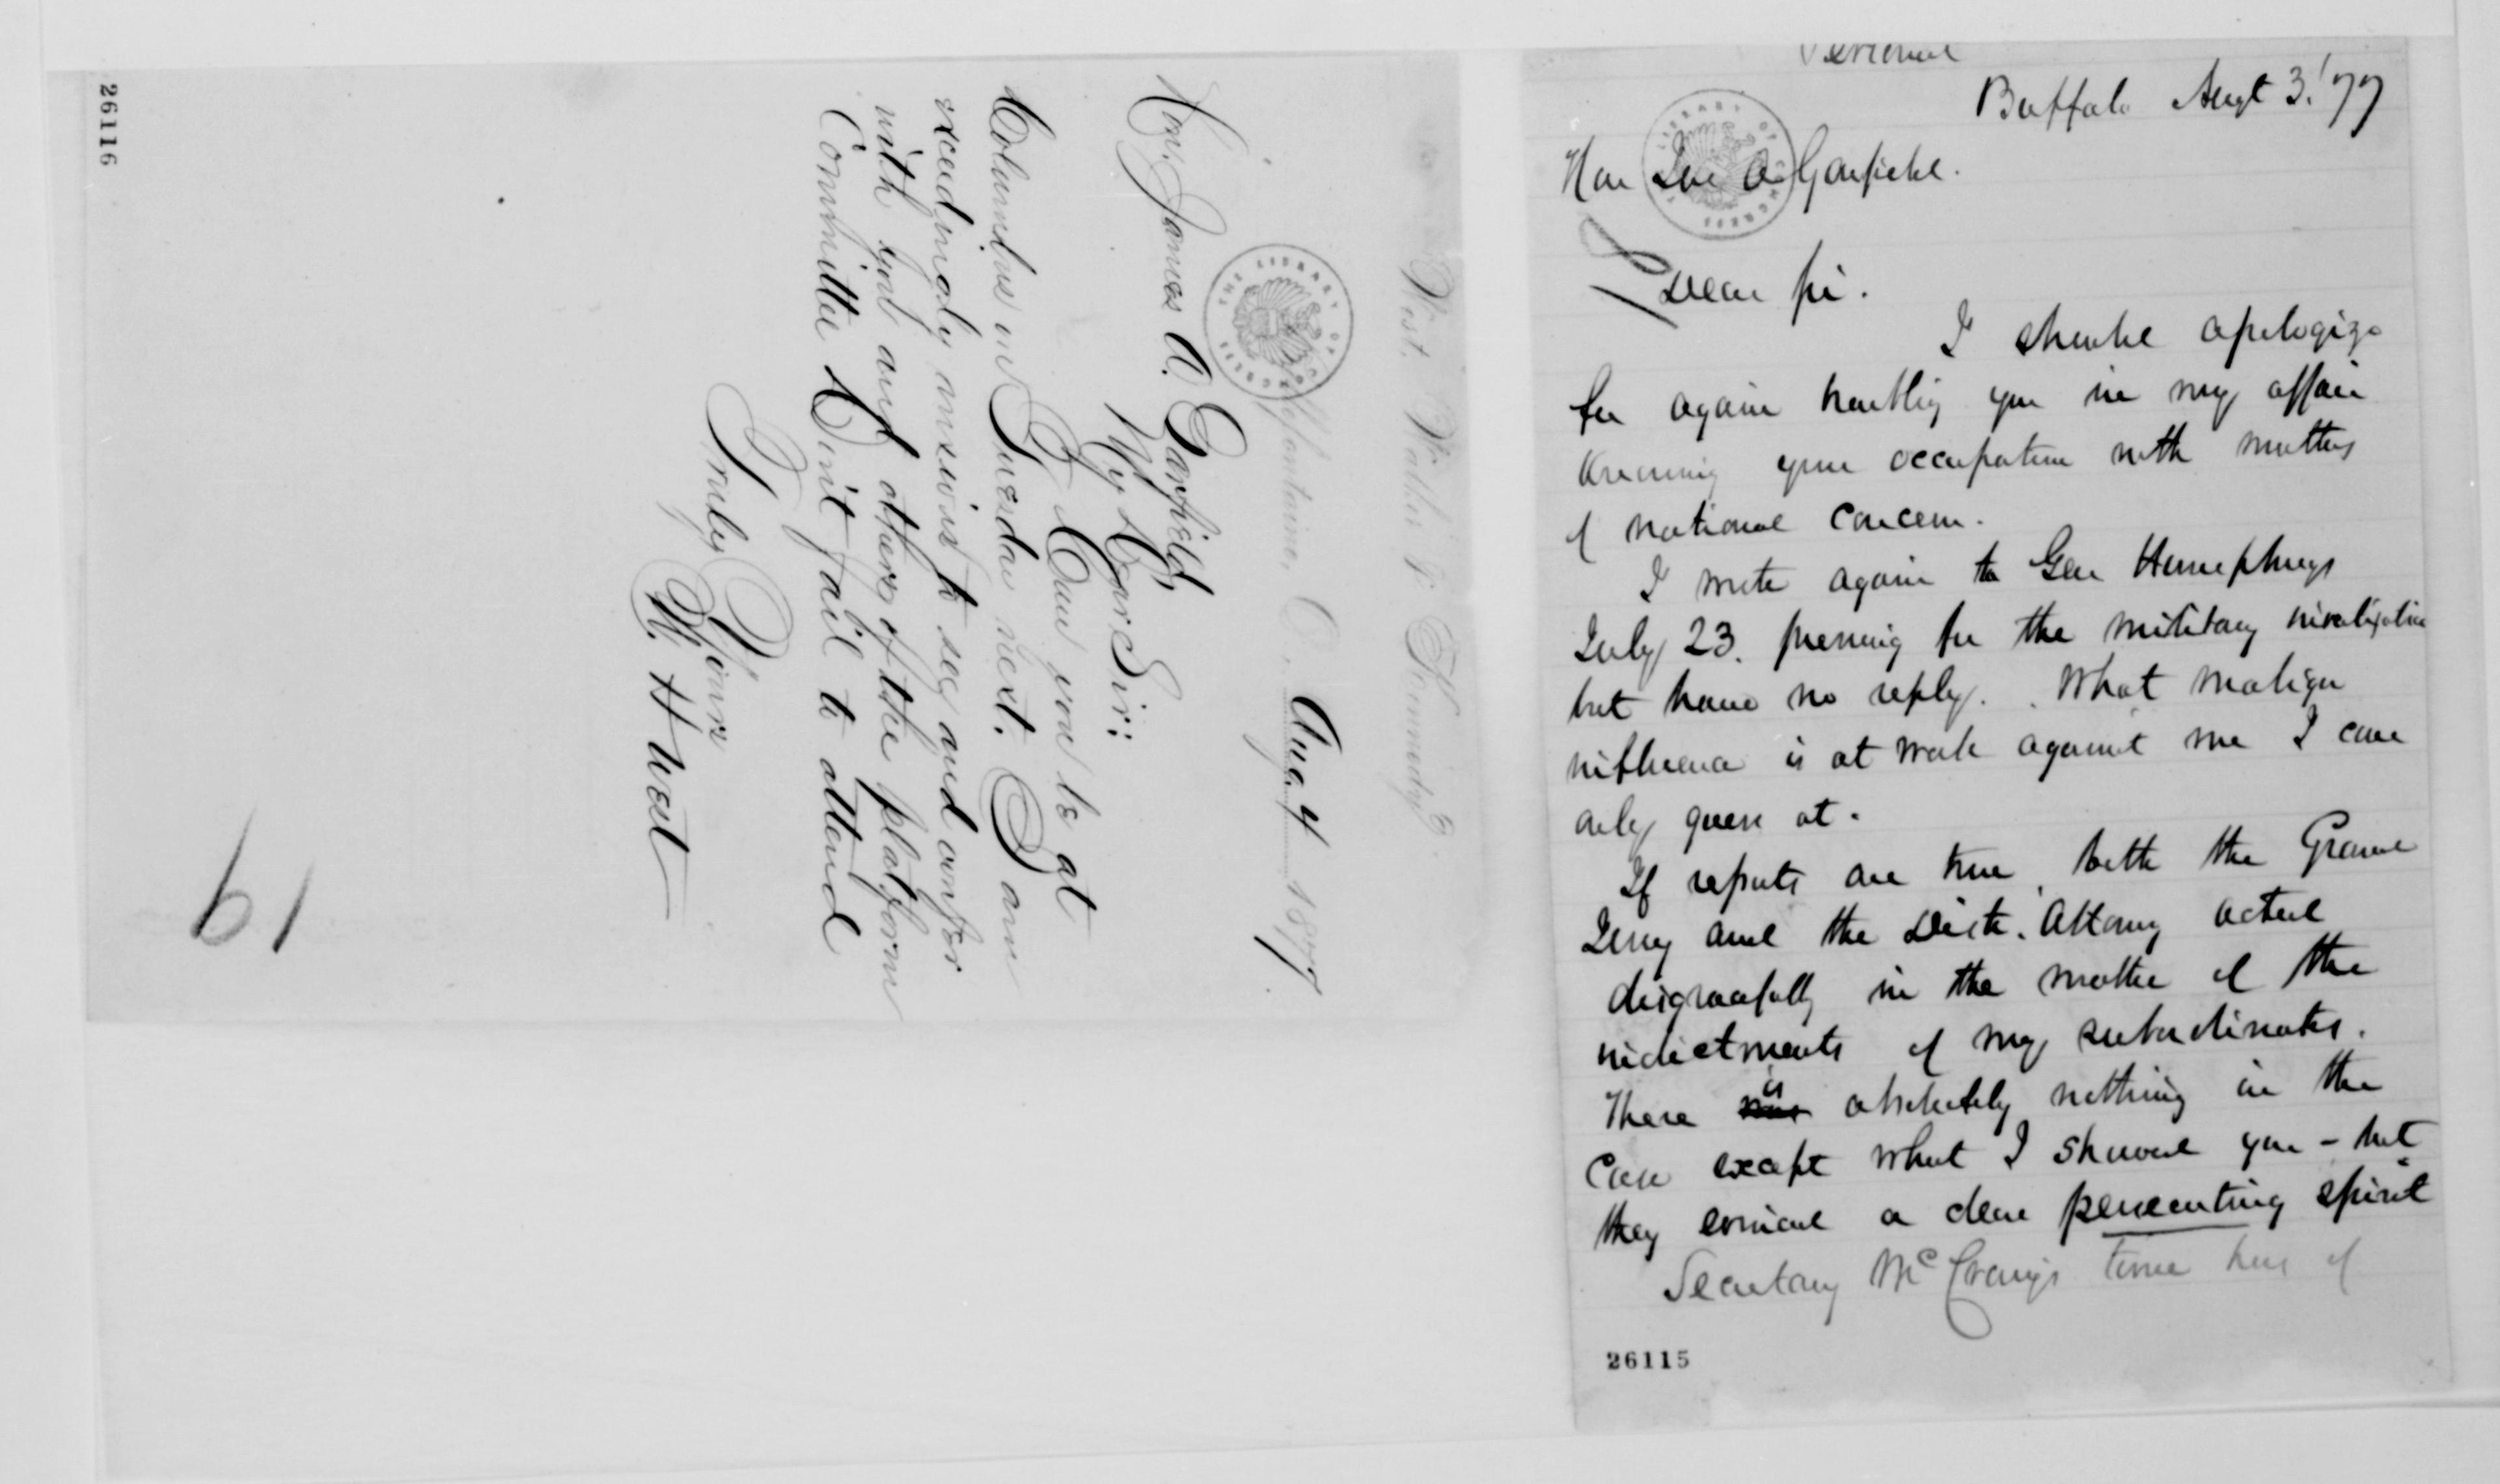 26116
West, Walker & Kennedy.
Bellefontaine, O., Aug. 4 1877.
Hon. James A. Garfield,
My Dear Sir:
Can you be at
Columbus on Tuesday next. I am
exceedingly anxious to see and confer
with you and others of the platform
Committee Don't fail to attend
Truly Yours
W. H. West
19
THE LIBRARY OF CONGRESS
Personal
Buffalo Augt 3. '77
Hon Jas A Garfield.
THE LIBRARY OF CONGRESS
Dear Sir.
I should apologize
for again troubling you in my affair
knowing your occupation with matters
of national concern.
I wrote again to Gen Humphreys
July 23. pressing for the military investigation
but have no reply. What malign
influence is at work against me I can
only guess at.
If reports are true, both the Grand
Jury and the Dist. Attorny acted
disgracefully in the matter of the
indictments of my subordinates.
There is absolutely nothing in the
Case except what I showed you - but
they evince a clear persecuting spirit
Secretary McCrary's time has of
26115